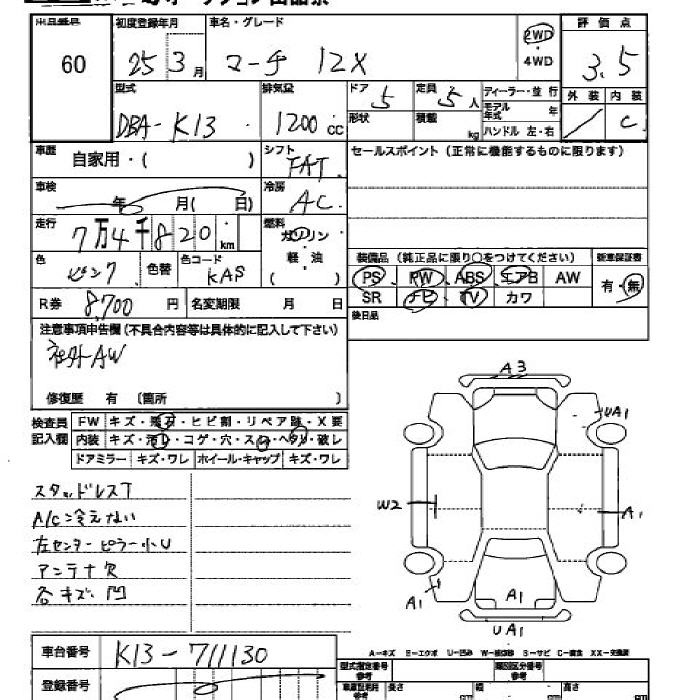 出品番号 初度登録年月 車名・グレード 2WD・4WD 評価点
60 25 3月 マーチ 12X 3.5
型式 排気量 ドア 5 定員 5人 ディーラー・並行 外装 内装
DBA-K13 1200cc 形状 積載 kg モデル年式 年 ハンドル 左・右 C
車歴 自家用・( ) シフト FAT セールスポイント(正常に機能するものに限ります)
車検 年 月( 日) 冷房 AC
走行 7万4千820km 燃料 ガソリン 軽・油 ( )
色 ピンク 色替 色コード KAS 装備品(純正品に限り○をつけてください) 新車保証書
PS PW ABS エアB AW 有・無
R券 8,700円 名変期限 月 日 SR ナビ TV カワ
後日品
注意事項申告欄(不具合内容等は具体的に記入して下さい)
社外AW
修復歴 有 〔箇所 〕
検査員記入欄 FW キズ・飛石・ヒビ割・リペア跡・X要
内装 キズ・汚れ・コゲ・穴・スレ・ヘタリ・破レ
ドアミラー キズ・ワレ ホイール・キャップ キズ・ワレ
スタッドレスT
A/C冷えない
左センターピラー小U
アンテナ欠
各キズ、凹
A3
UA1
W2
A1
A1
A1
UA1
A-キズ E-エクボ U-凹み W-補修跡 S-サビ C-腐食 XX-交換済
車台番号 K13-711130 型式指定番号 参考 類別区分番号 参考
登録番号 車庫証明用 参考 長さ cm 幅 cm 高さ cm